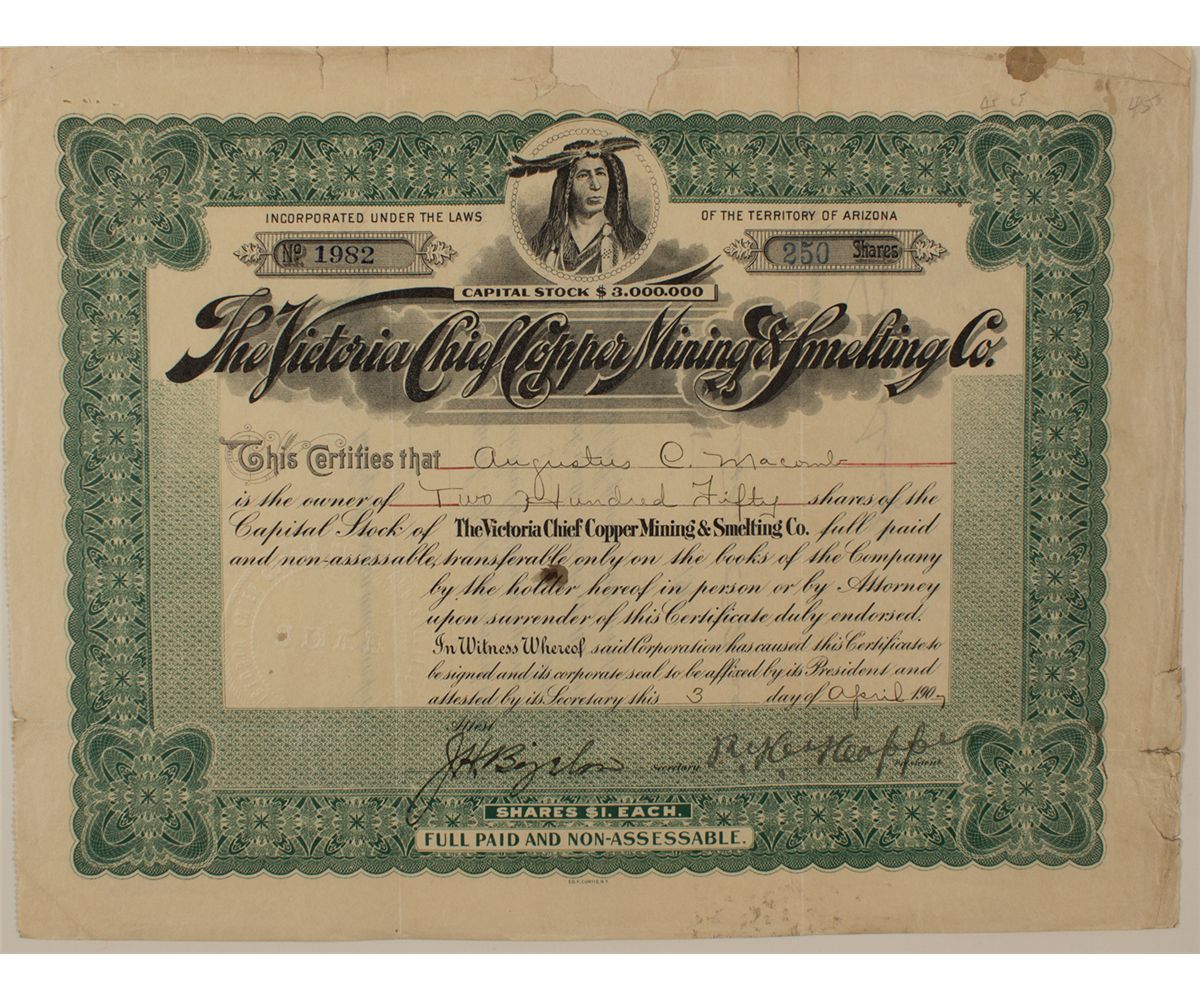 45
INCORPORATED UNDER THE LAWS OF THE TERRITORY OF ARIZONA
No 1982
250 Shares
CAPITAL STOCK $ 3.000.000
The Victoria Chief Copper Mining & Smelting Co.
This Certifies that Augustus C. Macomb
is the owner of Two Hundred Fifty shares of the
Capital Stock of The Victoria Chief Copper Mining & Smelting Co. full paid
and non-assessable, transferable only on the books of the Company
by the holder hereof in person or by Attorney
upon surrender of this Certificate duly endorsed.
In Witness Whereof said Corporation has caused this Certificate to
be signed and its corporate seal to be affixed by its President and
attested by its Secretary this 3 day of April 1907
Attest
J H Bigelow Secretary President
SHARES $1. EACH.
FULL PAID AND NON-ASSESSABLE.